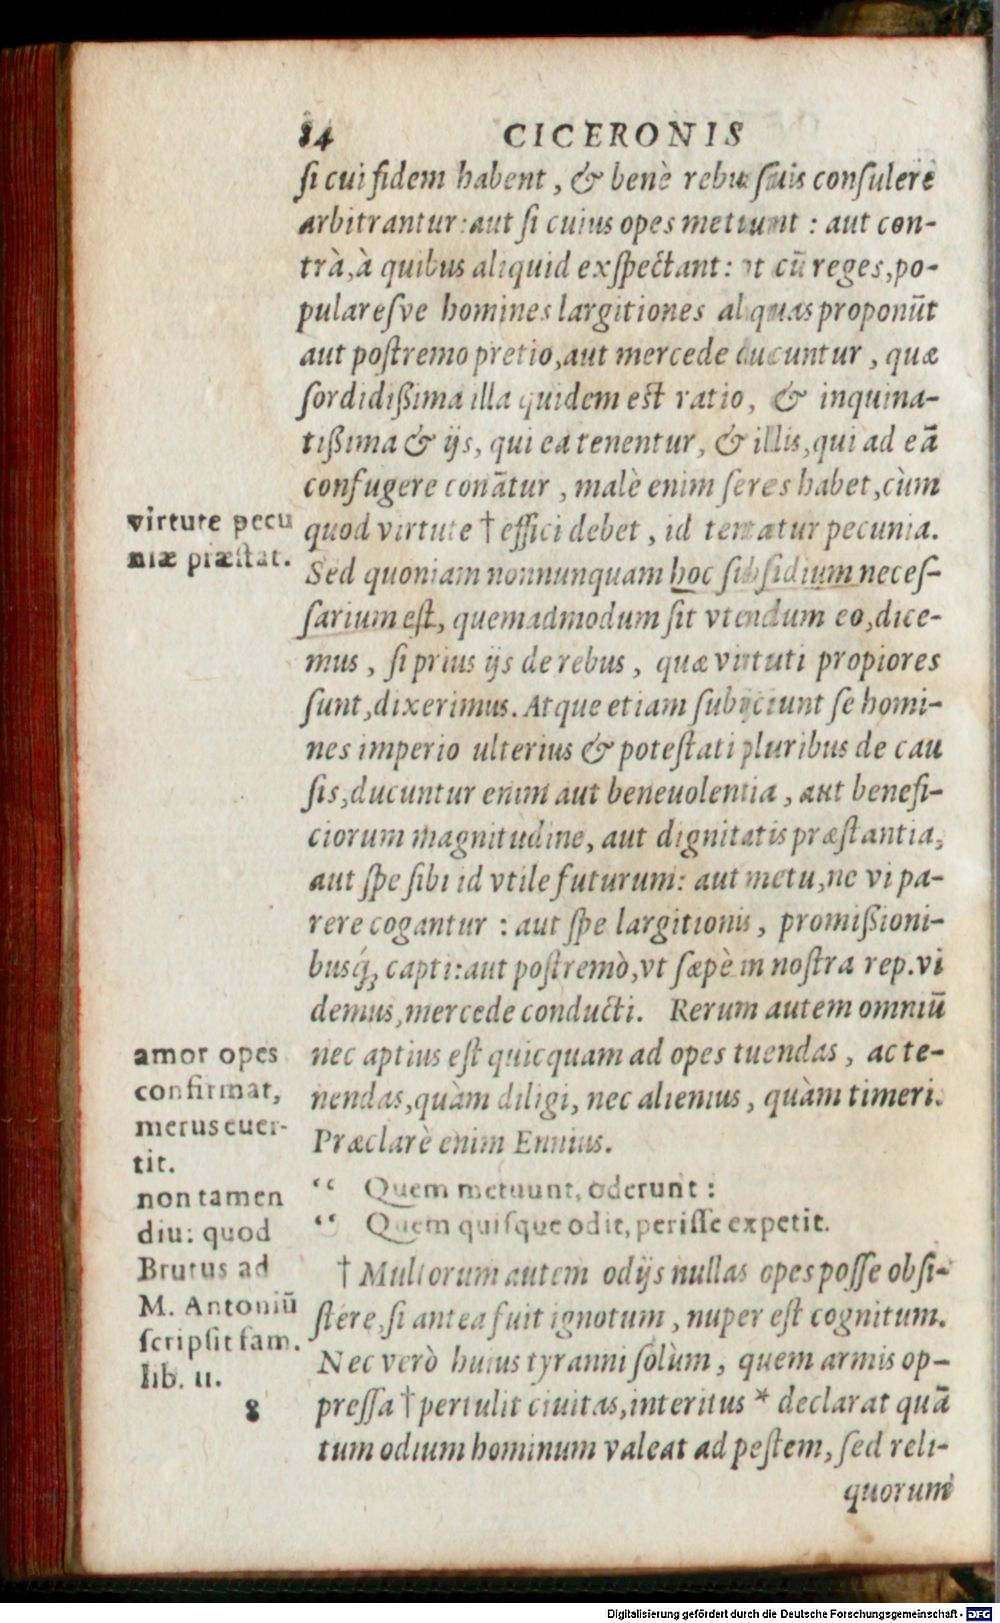 84 CICERONIS
si cui fidem habent, & benè rebus suis consulere
arbitrantur: aut si cuius opes metuunt: aut con-
trà, à quibus aliquid exspectant: vt cũ reges, po-
pularesve homines largitiones aliquas proponũt
aut postremo pretio, aut mercede ducuntur, quæ
sordidißima illa quidem est ratio, & inquina-
tißima & ijs, qui ea tenentur, & illis, qui ad eã
confugere conãtur, malè enim se res habet, cùm
virtute pecu
niæ præstat.
quod virtute † effici debet, id tentatur pecunia.
Sed quoniam nonnunquam hoc subsidium neces-
sarium est, quemadmodum sit vtendum eo, dice-
mus, si prius ijs de rebus, quæ virtuti propiores
sunt, dixerimus. Atque etiam subijciunt se homi-
nes imperio ulterius & potestati pluribus de cau
sis, ducuntur enim aut beneuolentia, aut benefi-
ciorum magnitudine, aut dignitatis præstantia,
aut spe sibi id vtile futurum: aut metu, ne vi pa-
rere cogantur: aut spe largitionis, promißioni-
busq́; capti: aut postremò, vt sæpè in nostra rep. vi
demus, mercede conducti. Rerum autem omniũ
amor opes
confirmat,
metus euer-
tit.
non tamen
diu: quod
Brutus ad
M. Antoniũ
scripsit fam.
lib. 11.
8
nec aptius est quicquam ad opes tuendas, ac te-
nendas, quàm diligi, nec alienius, quàm timeri.
Præclarè enim Ennius.
“ Quem metuunt, oderunt:
“ Quem quisque odit, periisse expetit.
† Multorum autem odijs nullas opes posse obsi-
stere, si antea fuit ignotum, nuper est cognitum.
Nec verò huius tyranni solùm, quem armis op-
pressa † pertulit ciuitas, interitus * declarat quã
tum odium hominum valeat ad pestem, sed reli-
quorum
Digitalisierung gefördert durch die Deutsche Forschungsgemeinschaft - DFG